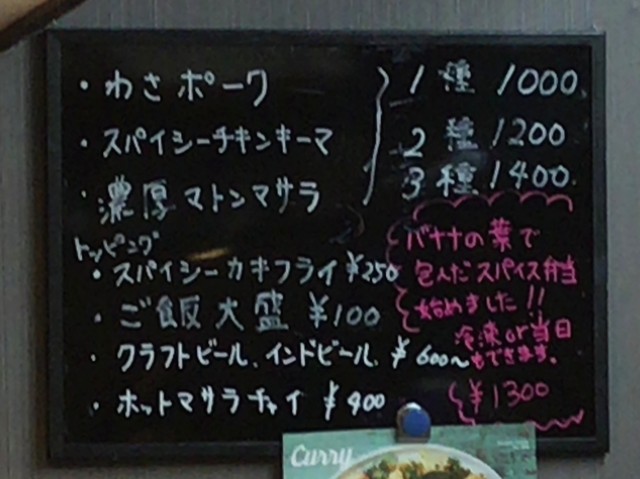 ・わさポーク
・スパイシーチキンキーマ
・濃厚マトンマサラ
1種 1000
2種 1200
3種 1400
トッピング
・スパイシーカキフライ ¥250
・ご飯大盛 ¥100
・クラフトビール、インドビール、¥600~
・ホットマサラチャイ ¥400
バナナの葉で
包んだスパイス弁当
始めました!!
冷凍or当日
もできます。
¥1300
Curry